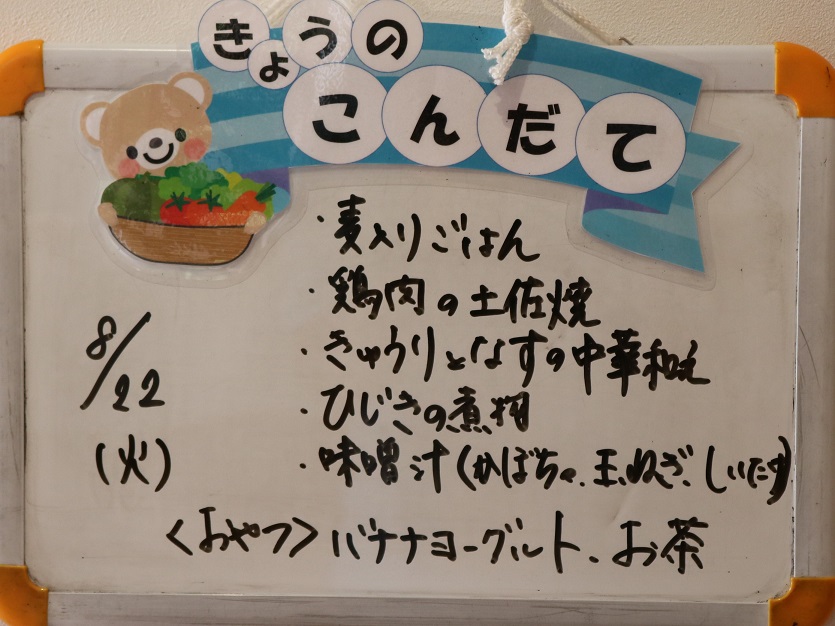 きょうの
こんだて
・麦入りごはん
・鶏肉の土佐焼
・きゅうりとなすの中華和え
・ひじきの煮物
・味噌汁(かぼちゃ、玉ねぎ、しいたけ)
8/22
(火)
<おやつ>バナナヨーグルト、お茶